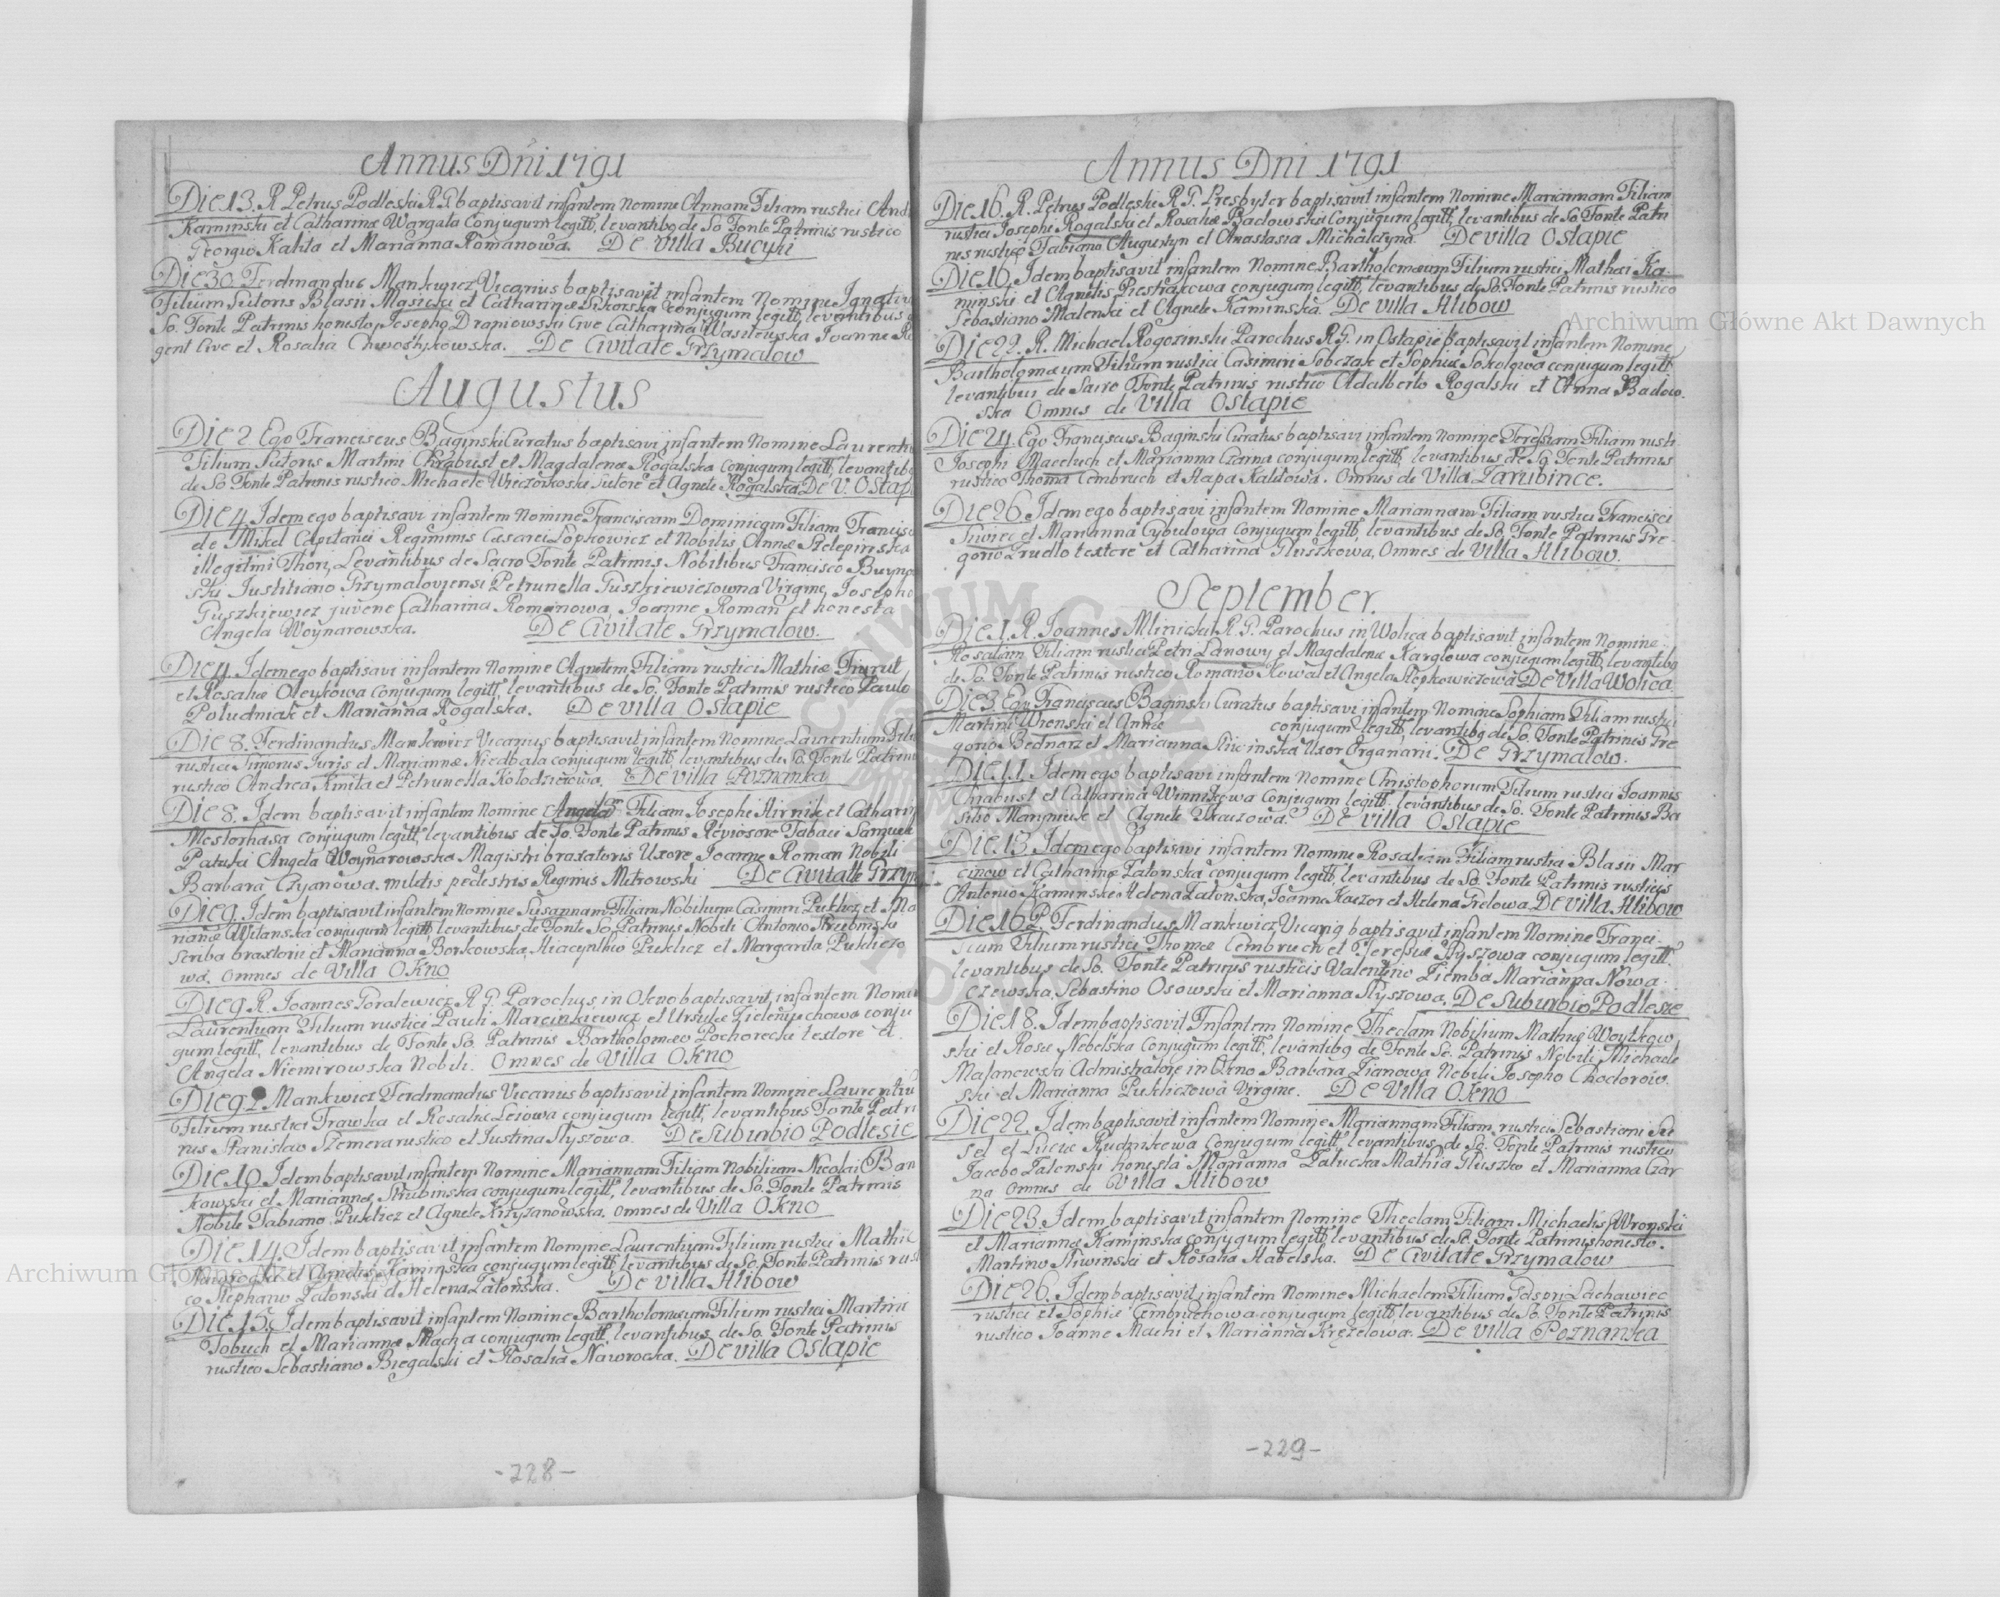 Annus Dni 1791
Die 13. R. Petrus Podleski R.G. baptisavit infantem Nomine Annam Filiam rustici And
Kaminski et Catharinæ Wargata Conjugum legitt, levantibq de So Fonte Patrinis rustico
Georgio Kalita et Marianna Romanowa. De Villa Bucyki
Die 30. Ferdinandus Mankwicz Vicarius baptisavit infantem Nomine Ignatiu
Filium Sutoris Blasii et Catharinæ Sikorska conjugum legitt, levantibus
So. Fonte Patrinis honesto Josepho Drapiowski Cive Catharina Wasilewska Joanne
gent Cive et Rosalia Chwostykowska. De Civitate Grzymałow
Augustus
Die 2 Ego Franciscus Baginski Curatus baptisavi infantem Nomine Laurenti
Filium Sutoris Martini Chrabust et Magdalenæ Rogalska conjugum legitt, levantib
de So Fonte Patrinis rustico Michaele Wieczorkoski sutore et Agnete Rogalska. De V. Ostap
Die 4. Idem ego baptisavi infantem Nomine Franciscam Dominicam Filiam Francisc
de Mikel Capitanei Regiminis Cæsarei Lopkowicz et Nobilis Annæ Szelepinska
illegitimi Thori, Levantibus de Sacro Fonte Patrinis Nobilibus Francisco Buyno
ski Justitiario Grzymaloviensi Petrunella Guszkiewiczowna Virgine, Josepho
Guszkiewicz juvene Catharina Romanowa, Joanne Roman et honesta
Angela Woynarowska. De Civitate Grzymałow.
Die 4. Idem ego baptisavi infantem Nomine Agnetem Filiam rustici Mathiæ
et Rosaliæ Oleykowa Conjugum legitt, levantibus de So. Fonte Patrinis rustico Paulo
Południak et Marianna Rogalska. De Villa Ostapie
Die 8. Ferdinandus Mankwicz Vicarius baptisavit infantem Nomine Laurentium Fili
rustici Simonis et Mariannæ Niedbala conjugum legitt, levantibus de So. Fonte Patrini
rustico Andrea Kmita et Petrunella Kolodzieiowa. De Villa Poznanka
Die 8. Idem baptisavit infantem Nomine Angela Filiam Josephi Hirnik et Catharin
Mestorhasa conjugum legitt, levantibus de So. Fonte Patrinis Revisore Tabaci Samuele
Patuski Angela Woynarowska Magistri braxatoris Uxore Joanne Roman Nobili
Barbara Czyanowa. militis pedestris Regiminis Mitrowski De Civitatte Grzym
Die 9. Idem baptisavit infantem Nomine Susannam Filiam Nobilium Casimiri Puklicz et Ma
riannæ Wilanska conjugum legitt, levantibus de Fonte So. Patrinis Nobili Antonio Strubinski
scriba brasterii et Marianna Borkowska, Hiacyntho Puklicz et Margarita Pukliczo
wa. omnes de Villa Okno
Die 9 R. Joannes Goralewicz R.G. Parochus in Okno baptisavit infantem Nomin
Laurentium Filium rustici Pauli Marcinkiewicz et Ursulæ conju
gum legitt, levantibus de Fonte So. Patrinis Bartholomæo Pochorecki textore et
Angela Niemirowska Nobili. omnes de Villa Okno
Die 9 Mankwicz Ferdinandus Vicarius baptisavit infantem Nomine Laurentiu
Filium rustici Frawska et Rosaliæ Leiowa conjugum legitt, levantibus Fonte Patri
nis Stanislao Szemera rustico et Justina Slyszowa. De Suburbio Podlesie
Die 10. Idem baptisavit infantem Nomine Mariannam Filiam Nobilium Nicolai Ban
kowski et Mariannæ Strubinska conjugum legitt, levantibus de So. Fonte Patrinis
Nobile Fabiano Puklicz et Agnete Krzyzanowska. omnes de Villa Okno
Die 14. Idem baptisavit infantem Nomine Laurentium Filium rustici Mathiæ
Nawrocka et Kaminska conjugum legitt, levantibus de So. Fonte Patrinis rusti
co Stephano Zatonski et Helena Zatonska. De Villa Hlibow
Die 15. Idem baptisavit infantem Nomine Bartholomæum Filium rustici Martini
Tobuch et Mariannæ Macha conjugum legitt, levantibus de So. Fonte Patrinis
rustico Sebastiano Biegalski et Rosalia Nawrocka. De Villa Ostapie
-228-
Annus Dni 1791
Die 16. R. Petrus Podleski R.G. Presbyter baptisavit infantem Nomine Mariannam Filiam
rustici Josephi Rogalski et Rosaliæ Badowska Conjugum legitt, levantibus de So. Fonte Patri
nis rustico Fabiano Augustyn et Anastasia Michalczyna. De Villa Ostapie
Die 16. Idem baptisavit infantem Nomine Bartholomæum Filium rustici Mathei Ka
minski et Agnetis Piestrakowa conjugum legitt, levantibus de So. Fonte Patrinis rustico
Sebastiano Malenki et Agnete Kaminska. De Villa Hlibow
Die 22. R. Michael Rogozinski Parochus R.G. in Ostapie baptisavit infantem Nomine
Bartholomæum Filium rustici Casimiri Sobczak et Sophiæ Sokolowa conjugum legitt
levantibus de Sacro Fonte Patrinis rustico Adalberto Rogalski et Anna Badow
ska Omnes de Villa Ostapie
Die 24. Ego Franciscus Baginski Curatus baptisavi infantem Nomine Teressiam Filiam rusti
Josephi Maceluch et Marianna Czarna conjugum legitt, levantibus de So. Fonte Patrinis
rustico Thoma Cembruch et Hapa Kalitowa. Omnes de Villa Zarubince.
Die 26. Idem ego baptisavi infantem Nomine Mariannam Filiam rustici Francisci
Siwiec et Marianna Cybulowa Conjugum legitt, levantibus de So. Fonte Patrinis Gre
gorio Gruello textore et Catharina Gluszkowa, Omnes de Villa Hlibow.
September.
Die 1. R. Joannes Mlinicki R.G. Parochus in Wolica baptisavit infantem Nomine
Rosaliam Filiam rustici Petri Lanowy et Magdalenæ Karglowa conjugum legitt, levantibq
de So. Fonte Patrinis rustico Romano Kowal et Angela Stepkowiczowa De Villa Wolica.
Die 3 Ego Franciscus Baginski Curatus baptisavi infantem Nomine Sophiam Filiam rustici
Martini Wrenski et Annæ conjugum legitt, levantibq de So. Fonte Patrinis Gre
gorio Bednarz et Marianna Sliwinska Uxor Organarii. De Grzymalow.
Die 11. Idem ego baptisavi infantem Nomine Christophorum Filium rustici Joannis
Chrabust et Catharina Winnikowa conjugum legitt, levantibus de So. Fonte Patrinis Ba
silio Marynuk et Agnete Tkaczowa. De Villa Ostapie
Die 13. Idem ego baptisavi infantem Nomine Rosaliam Filiam rustici Blasii Mar
cinow et Catharinæ Zatonska conjugum legitt, levantibus de So. Fonte Patrinis rusticis
Antonio Kaminski Helena Zatonska, Joanne Kaczor et Helena Grelowa. De Villa Hlibow
Die 16 P. Ferdinandus Mankwicz Vicariq baptisavit infantem Nomine Franci
scum Filium rustici Thomæ Cembruch et Teressiæ Ryszowa conjugum legitt.
levantibus de So. Fonte Patrinis rusticis Valentino Ziemba Marianna Nowa
czewska, Sebastino Osowski et Marianna Slyszowa. De Suburbio Podlesie
Die 18. Idem baptisavit Infantem Nomine Theclam Nobilium Mathiæ Woytkow
ski et Rosæ Nebelska Conjugum legitt, levantibq de Fonte So. Patrinis Nobili Michaele
Majanowski Administratore in Okno Barbara Zianowa Nobili Josepho Chodorow
ski et Marianna Pukliczowa Virgine. De Villa Okno
Die 22. Idem baptisavit infantem Nomine Mariannam Filiam rustici Sebastiani
sel et Luciæ Rudnikowa Conjugum legitt, levantibus de So. Fonte Patrinis rustico
Jacobo Zatonski honesta Marianna Zalucka Mathia Gluszko et Marianna Czar
na omnes de Villa Hlibow
Die 23. Idem baptisavit infantem Nomine Theclam Filiam Michaelis Wronski
et Marianna Kaminska Conjugum legitt, levantibus de So. Fonte Patrinis honesto
Martino Sliwinski et Rosalia Habelska. De Civitate Grzymalow
Die 26. Idem baptisavit infantem Nomine Michaelem Filium Gaspri Lachawiec
rustici et Sophiæ Cembruchowa conjugum legitt, levantibus de So. Fonte Patrinis
rustico Joanne Machi et Marianna Krezelowa. De Villa Poznanka
-229-
Archiwum Główne Akt Dawnych
Archiwum Główne Akt Dawnych